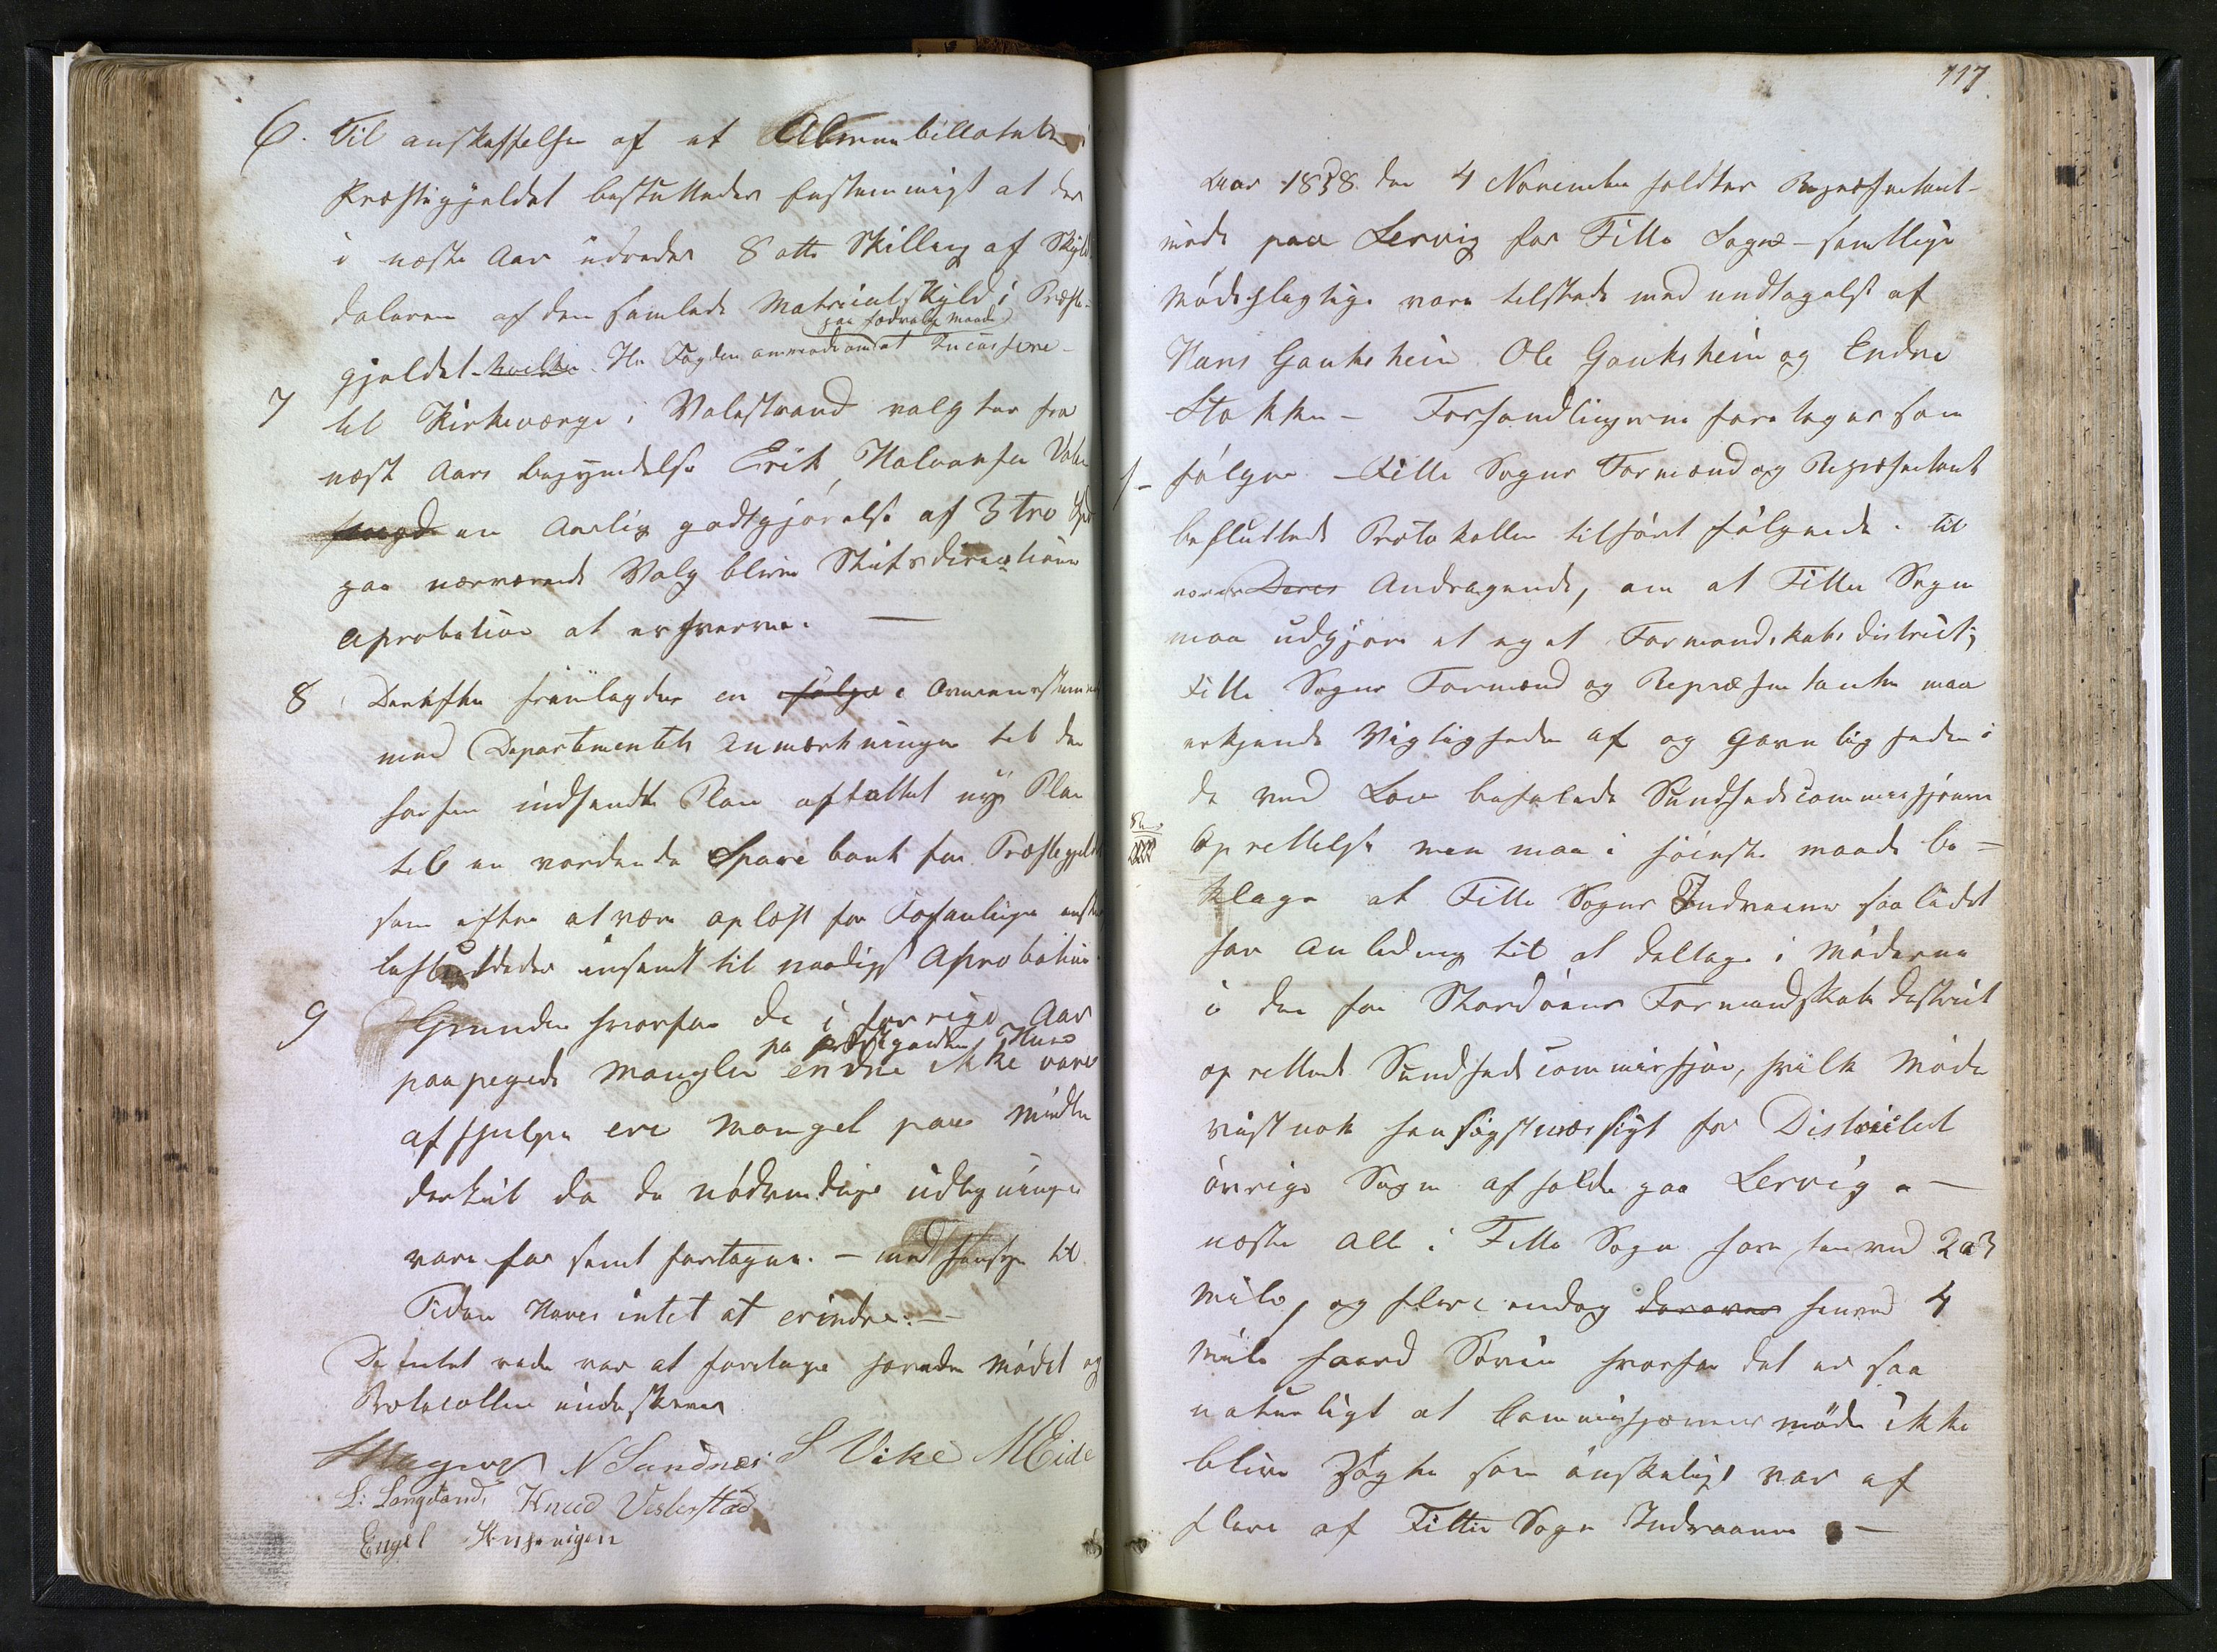 6. Til anskaffelsen af et Almuebibliothek i
Præstegjeldet besluttedes Eenstemmigt at der
i næste Aar udredes 8 otte Skilling af Skyld-
daleren af den samlede Matriculskyld i Præste-
paa sædvanlig Maade
gjeldet hvilke Hr. Fogden anmodes om at Incassere
7 til Kirkeværge i Valestrand valgtes fra
næst Aars begyndelse Erik Halvorsen Vale
en Aarlig godtgjørelse af 3 tre Spd
paa nærværende Valg blive Stiftsdirectionens
Aprobation at erhverve. —
8 Derefter fremlagdes en ifølge i Overeenstemmelse
med Departementets Anmærkninger til den
forhen indsendte Plan affattet ny Plan
til en vordende Sparebank for Præstegjeldet
som efter at være oplæst for Forsamlingen
besluttedes insendt til naadigst Aprobation
9 Grunden hvorfor de i forrige Aar
pa Præstgaardens Huse
paapegede Mangler endnu ikke vare
afhjulpne ere Mangel paa Midler
dertil da de nødvendige udligninger
vare for seent foretagne. — med Hensyn til
Tiden Haves intet at erindre. —
Da intet mere var at foretage hævedes Mødet og
Protocollen underskreves
N Sandnes S Vike M Eide
L: Langeland Knud Vesterstad
Engel
117
Aar 1838 den 4 November holdtes Repræsentant-
møde paa Lervig for Fitje Sogn — samtlige
Mødepligtige vare tilstede med undtagelse af
Hans Gouksheim Ole Gouksheim og Endre
Stokken — Forhandlingerne foretoges som
1 – følger — Fitje Sogns Formænd og Repræsentant
besluttede Protokollen tilført følgende. til
vores Deres Andragende, om at Fitje Sogn
maa udgjøre et eget Formandskabs district;
Fitje Sogns Formænd og Repræsentanter maa
erkjende Vigtigheden af og Gavnligheden i
de ved Lov befalede Sundhedscommissjoners
Oprettelse men maa i høieste maade be-
klage at Fitje Sogns Indvaanere saa lidet
har Anledning til at deltage i Møderne
i den for Stordøens Formandskabs district
oprettede Sundhedscommissjon, hvilke Møder
vistnok hensigtsmæssigt for Districtets
øvrige Sogne afholdes paa Lervig —
næsten Alle i Fitje Sogn have henved 2 a 3
Mile, og flere endog derover henved 4
Mile haard Søvei hvorfor det er saa
naturligt at Commissjonens møder ikke
blive søgte som ønskeligt var af
flere af Fitje Sogns Indvaanere —